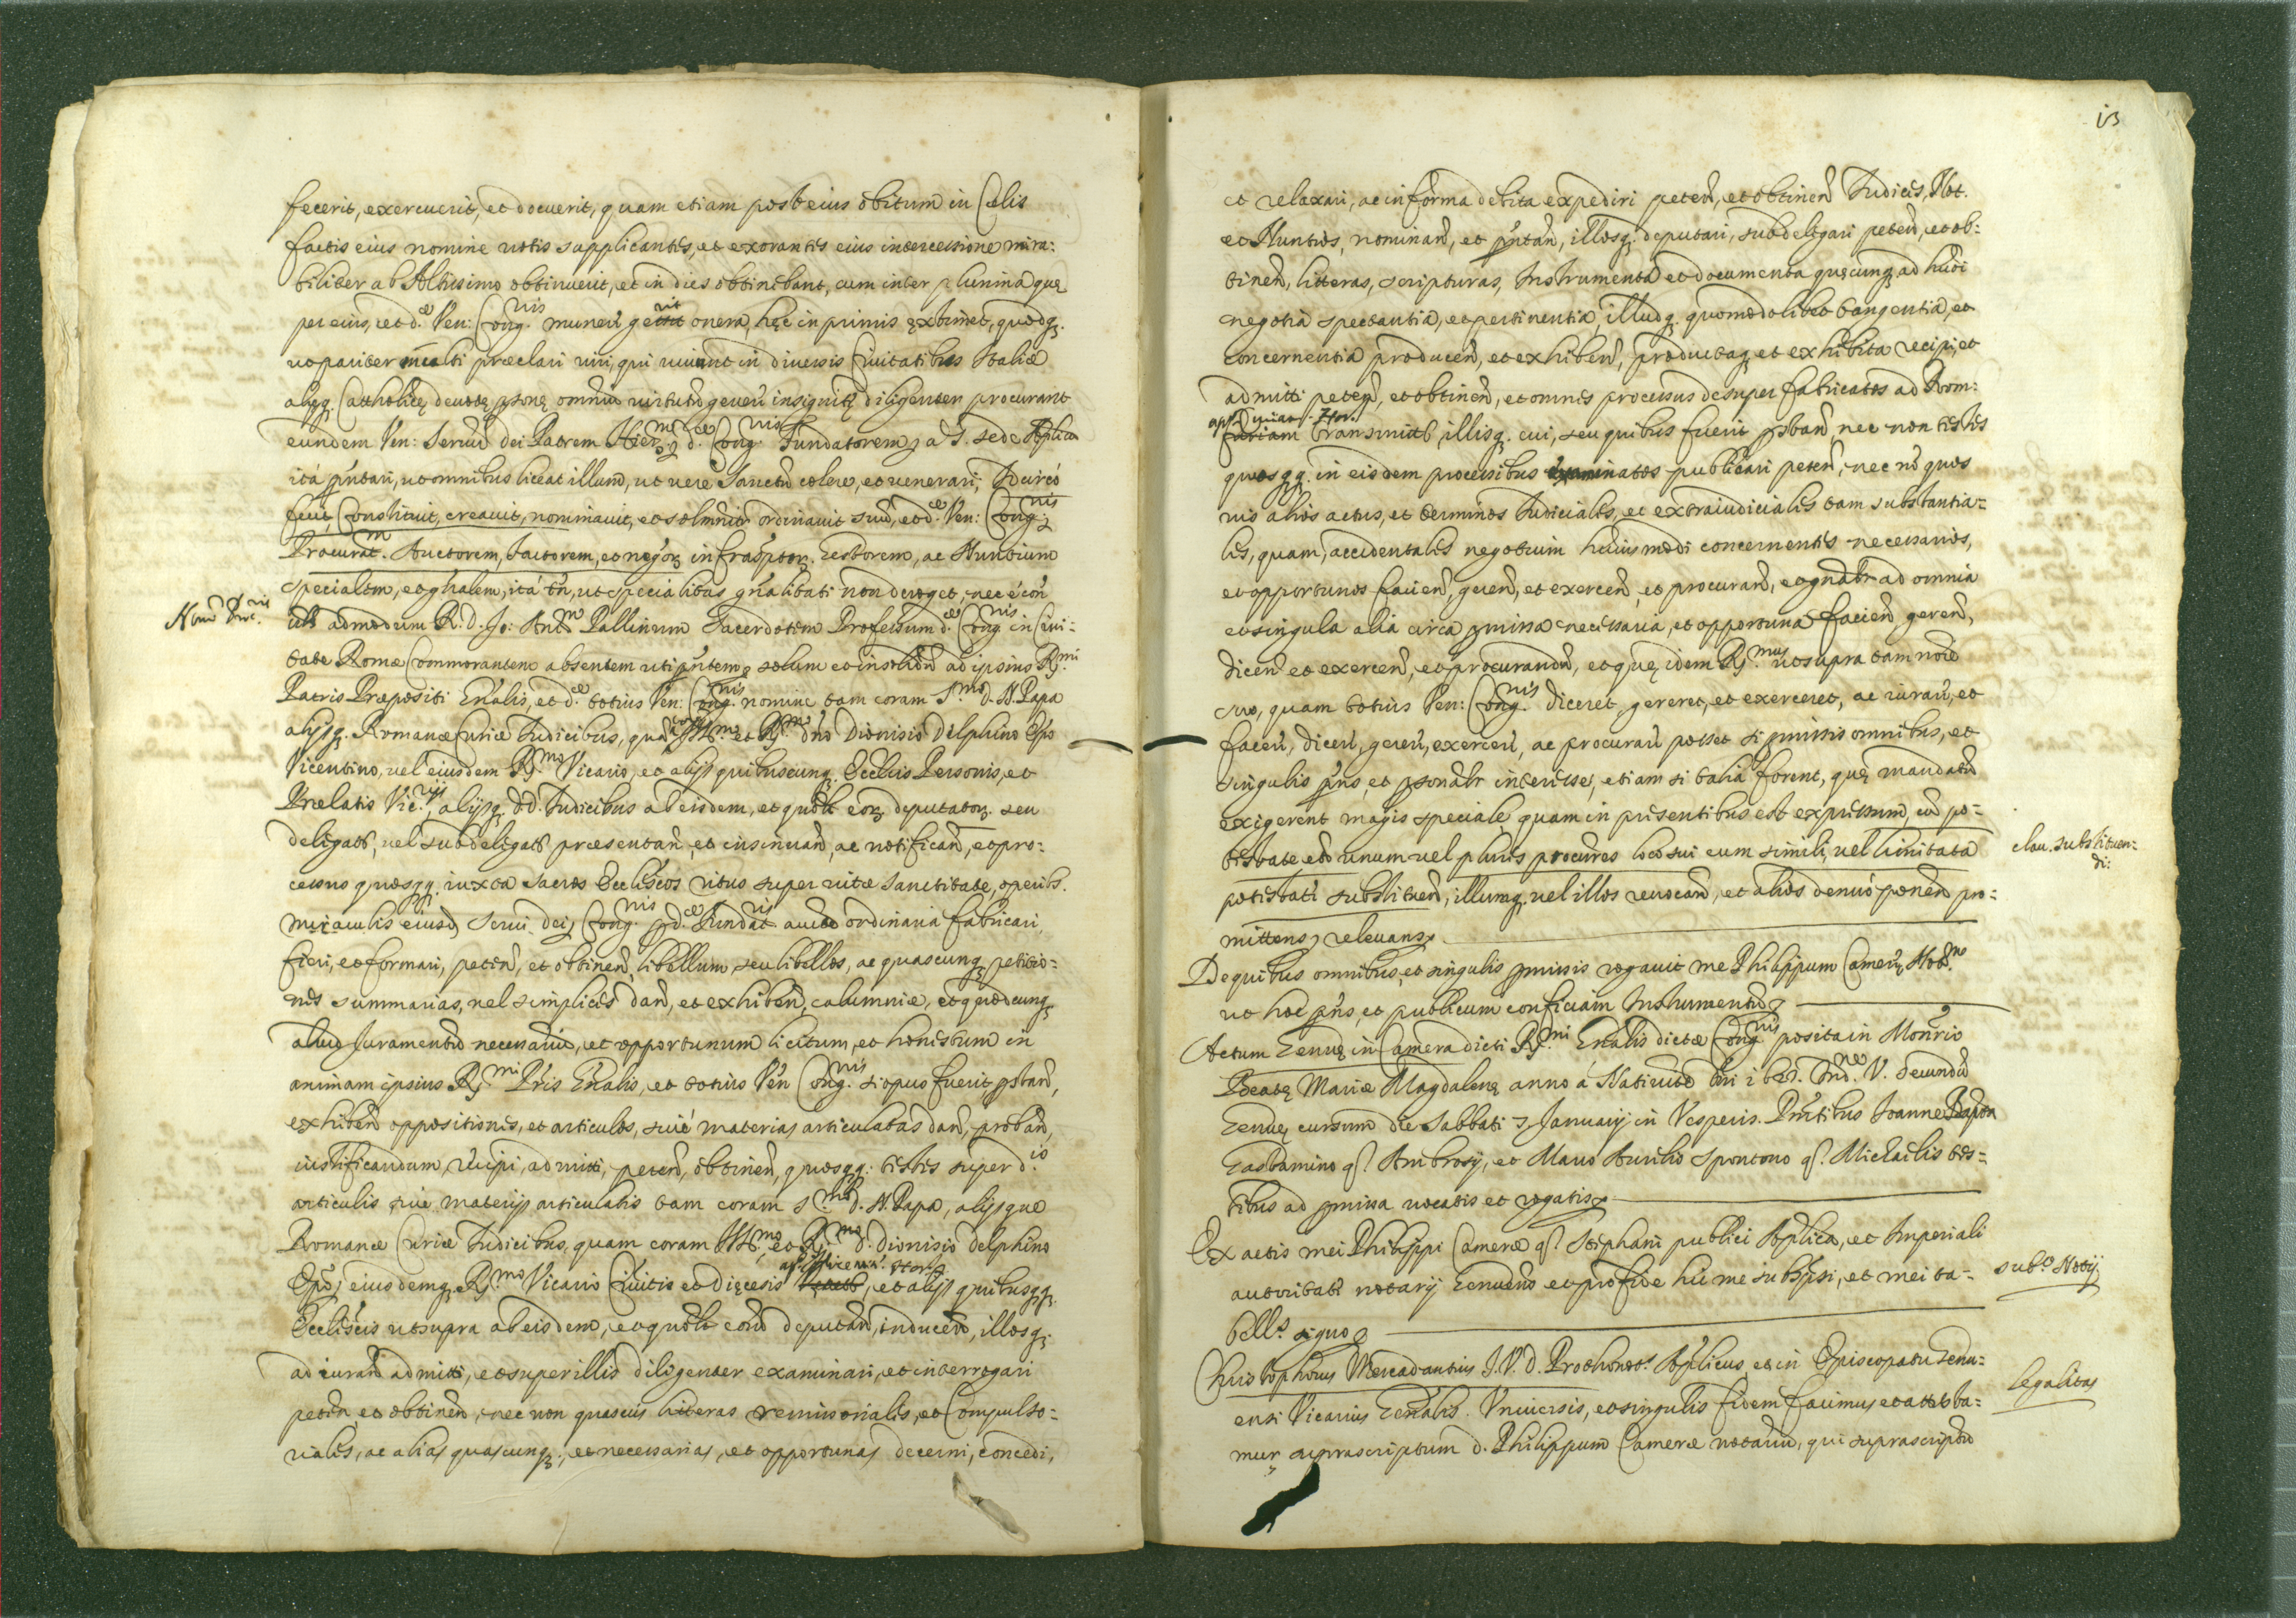 fecerit, exercuerit, et docuerit, quam etiam post eius obitum in Cęlis
factis eius nomine votis supplicantes, et exorantes eius intercessione mira:
biliter ab Altissimo obtinuerit, et in dies obtinebant, cum inter plurima quę
per eius, et d.ᵃᵉ Ven: Congⁿⁱˢ munerũ onera, hęc in primis extimet, quodq3
ut pariter multi præclari viri, qui vivunt in diversis Civitatibus Italiæ
alięq3 Catholicę devotę psonę omniũ virtutũ generũ insignitę diligenter procurant
eundem Ven: Servũ dei Patrem Hierᵐ d.ᵃᵉ Congⁿⁱˢ Fundatorem a S. Sede Aplica
ità pñtari, ut omnibus liceat illum, ut vere Sanctũ colere, et venerari, Idcircò
fecit, Constituit, creavit, nominavit, et solmnit ordinavit suũ, et d.ᵃᵉ Ven: Congⁿⁱˢ
Procurat.ᵐ Auctorem, factorem, et negot infraptor. Gestorem, ac Nuntium
specialem, et gñalem, ità tñ, ut specialitas gñalitati non deroget, nec é con
Nomᵒ Proc.ʳⁱˢ
admodum R. D. Jo: Antᵐ Pallinum Sacerdotem Professum d.ᵃᵉ Congⁿⁱˢ in Civi-
tate Romæ Commorantem absentem uti pñtem solum et insolidũ ad ipsius Rᵐⁱ
Patris Præpositi Gñalis, et d.ᵃᵉ totius Ven: Congⁿⁱˢ nomine tam coram S.ᵐᵒ d. N. Papa
alijsq3 Romanæ Curiæ Judicibus, quã coram Ill.ᵐᵒ et R.ᵐᵒ dño Dionisio Delphino Epo
Vicentino, vel eiusdem R.ᵐᵒ Vicario, et alijs quibuscunq3 Ecclicis Personis, et
Prælatis Vic.ʳⁱʲˢ alijsq3 dd. Judicibus ab eisdem, et quolt eorũ deputator3 seu
delegatis, vel subdelegatis præsentan̄, et insinuan̄, ac notifican̄, et pro:
cessus quosq3 iuxta sacros Ecclicos ritus super vitæ sanctitate, operib3
miraculis eiusd Servi dei, Congⁿⁱˢ pd.ᵃᵉ Fundat.ʳⁱˢ auctẽ ordinaria fabricari,
fieri, et formari, peten̄, et obtinen̄, libellum seu libellos, ac quascunq3 petitio:
nes summarias, vel simplices dan̄, et exhiben̄, calumniæ, et quodcunq3
aliud Juramentũ necessariũ, et opportunum licitum, et honestum in
animam ipsius R.ᵐⁱ Pris Gñalis, et totius Vẽn Congⁿⁱˢ si opus fuerit pstan̄,
exhiben̄ oppositiones, et articulos, sivé materias articulatas dan̄, proban̄,
iustificandum, recipi, admitti, peten̄, obtinen̄, quosq3 testes super d.ⁱˢ
articulis sive materijs articulatis tam coram S.ᵐᵒ d. N. Papa, alijsque
Romanæ Curiæ Judicibus, quam coram Ill.ᵐᵒ et R.ᵐᵒ d. Dionisio Delphino
Epo, eiusdemq3 R.ᵐᵒ Vicario Civitis et Diecesis, et alijs quibusq3
Ecclicis ut supra ab eisdem, et quolt eorũ deputan̄, inducen̄, illosq3
ad iuran̄ admitti, et super illis diligenter examinari, et interrogari
peten̄ et obtinen̄, nec non quasvis litteras remissoriales, et Compulso:
riales, ac alias quascunq3, et necessarias, et opportunas decerni, concedi,
13
et relaxari, ac in forma debita expediri peten̄, et obtinen̄ Judices, Not.
et Nuntios, nominan̄, et pñtan̄, illosq3 deputari, subdelegari peten̄, et ob:
tinen̄, litteras, scripturas, Instrumenta et documenta quęcunq3 ad huõi
negotia spectantia, et pertinentia, illudq3 quomodolibet tangentia, et
concernentia producen̄, et exhiben̄, productaq3 et exhibita recipi, et
admitti peten̄, et obtinen̄, et omnes processus desuper fabricatos ad Rom:
Curiam transmitti, illisq3 cui, seu quibus fuerit pstan̄, nec non testes
quosq3 in eisdem processibus examinatos publicari peten̄, nec nõ quos
vis alios actus, et terminos Judiciales, et extraiudiciales tam substantia-
les, quam, accidentales negotium huiusmodi concernentes necessarios,
et opportunos facien̄, geren̄, et exercen̄, et procuran̄, et gñaltr ad omnia
et singula alia circa pmissa necessaria, et opportuna facien̄, geren̄,
dicen̄ et exercen̄, et procurandũ, et quę idem R.ᵐᵘˢ ut supra tam noiẽ
suo, quam totius Ven: Congⁿⁱˢ diceret, gereret, et exerceret, ac iuran̄, et
facen̄, dicen̄, geren̄, exercen̄, ac procuran̄ posset si pmissis omnibus, et
singulis pñs, et psonaltr interesset, etiam si talia forent, quę mandatũ
exigerent magis speciale quam in presentibus est expressum, cũ po-
testate etiã unum vel plures procures loco sui cum simili, vel limitata
clau. substituen:
di:
potestate substituen̄, illumq3 vel illos revocan̄, et alios denuò ponen̄ pro:
mittens, relevans
De quibus omnibus, et singulis pmissis rogavit me Philippum Camerę Notᵐ
ut hoc pñs, et publicum conficiam Instrumentũ
Actum Genuę in Camera dicti R.ᵐⁱ Gñalis dictæ Congⁿⁱˢ posita in Monrio
Beatę Mariæ Magdalenę anno á Nativitẽ Dñi Indⁿᵉ V. secundũ
Genuę cursum die Sabbati 7 Januarij in Vesperis. Pñtibus Joanne Bapta
Gastamino q. Ambrosij, et Marco Aurelio Spontono q. Michaelis tes-
tibus ad pmissa vocatis et rogatis
Ex actis mei Philippi Cameræ q. Stephani publici Aplica, et Imperiali
autoritati notarij Genuens et pro fide hic me subscpsi, et mei ta-
sub.ᵒ Notij
bell.ˢ signo
Christophorus Mercadantius J.V.D. Prothonot.ˢ Aplicus, et in Episcopatu Genu:
legalitas
ensi Vicarius Gñalis. Universis, et singulis fidem facimus et attesta:
mur suprascriptum d. Philippum Cameræ notariũ, qui suprascriptũ